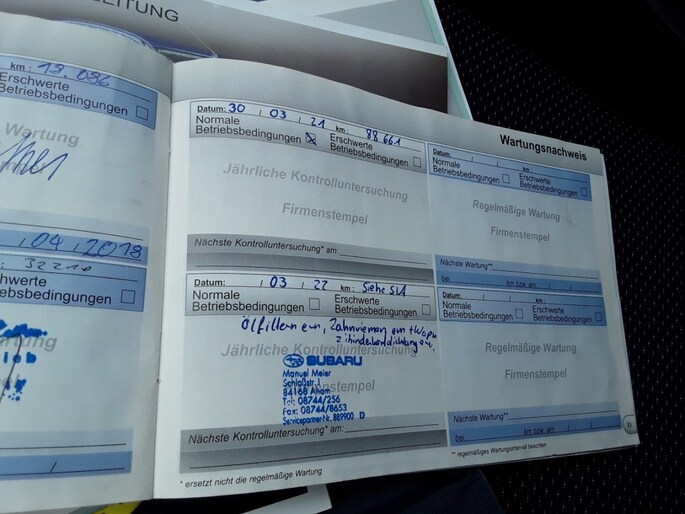 LEITUNG
km: 13.086
Erschwerte
Betriebsbedingungen
Wartung
04 / 2018
32210
Erschwerte
Betriebsbedingungen
Wartungsnachweis
Datum: 30 / 03 / 21 km: 88 661
Normale
Betriebsbedingungen
Erschwerte
Betriebsbedingungen
Jährliche Kontrolluntersuchung
Firmenstempel
Nächste Kontrolluntersuchung* am:
Datum: / / km:
Normale
Betriebsbedingungen
Erschwerte
Betriebsbedingungen
Regelmäßige Wartung
Firmenstempel
Nächste Wartung**
bei km bzw. am
Datum: / 03 / 22 km: Siehe
Normale
Betriebsbedingungen
Erschwerte
Betriebsbedingungen
Ölfiltern ern, Zahnriemen ern + Wapu
Jährliche Kontrolluntersuchung
SUBARU
Manuel Meier
Schloßstr. 1
84168 Aham
Tel: 08744/256
Fax: 08744/8653
Servicepartner Nr. 889900 D
Firmenstempel
Nächste Kontrolluntersuchung* am:
* ersetzt nicht die regelmäßige Wartung
Datum: / / km:
Normale
Betriebsbedingungen
Erschwerte
Betriebsbedingungen
Regelmäßige Wartung
Firmenstempel
Nächste Wartung**
bei km bzw. am
** regelmäßiges Wartungsintervall beachten
31